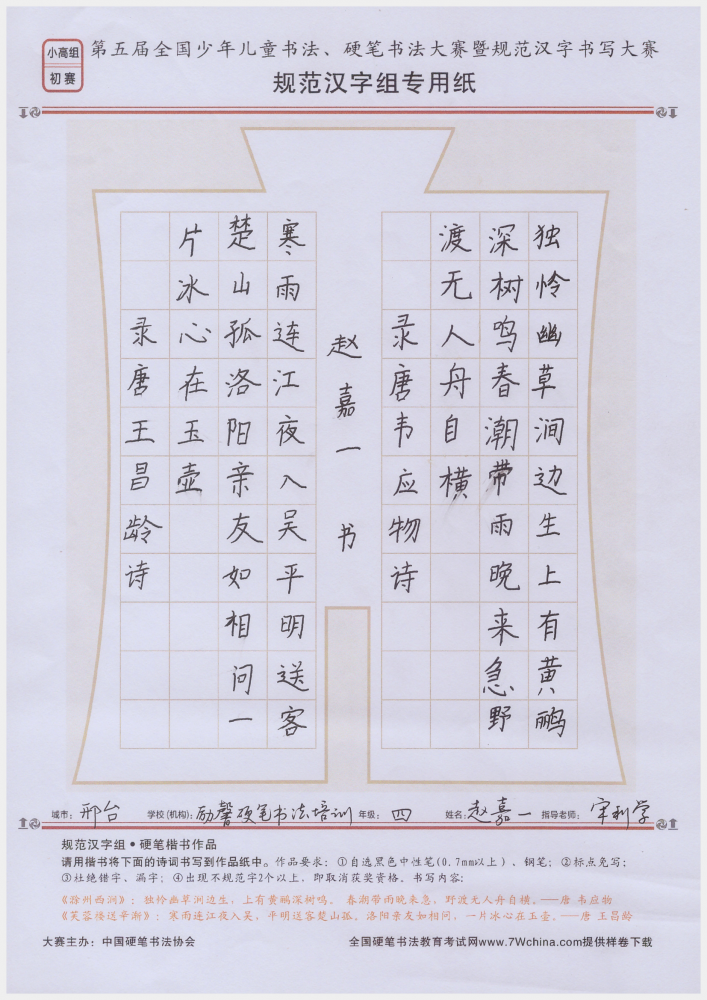 小高组
初赛
第五届全国少年儿童书法、硬笔书法大赛暨规范汉字书写大赛
规范汉字组专用纸
独怜幽草涧边生上有黄鹂
深树鸣春潮带雨晚来急野
渡无人舟自横
录唐韦应物诗
赵嘉一 书
寒雨连江夜入吴平明送客
楚山孤洛阳亲友如相问一
片冰心在玉壶
录唐王昌龄诗
城市：邢台 学校(机构)：励馨硬笔书法培训 年级：四 姓名：赵嘉一 指导老师：宋利学
规范汉字组•硬笔楷书作品
请用楷书将下面的诗词书写到作品纸中。作品要求：①自选黑色中性笔(0.7mm以上)、钢笔；②标点免写；
③杜绝错字、漏字；④出现不规范字2个以上，即取消获奖资格。书写内容：
《滁州西涧》：独怜幽草涧边生，上有黄鹂深树鸣。春潮带雨晚来急，野渡无人舟自横。——唐 韦应物
《芙蓉楼送辛渐》：寒雨连江夜入吴，平明送客楚山孤。洛阳亲友如相问，一片冰心在玉壶。——唐 王昌龄
大赛主办：中国硬笔书法协会 全国硬笔书法教育考试网www.7Wchina.com提供样卷下载